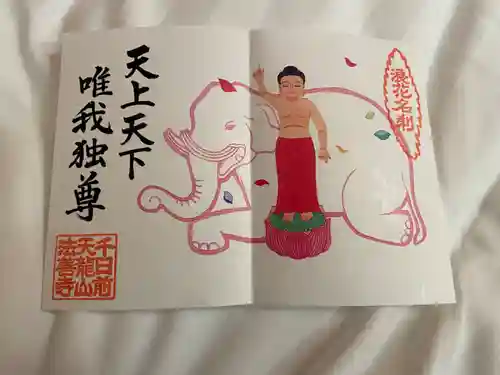 天上天下
唯我独尊
浪花名刹
千日前
天龍山
法善寺